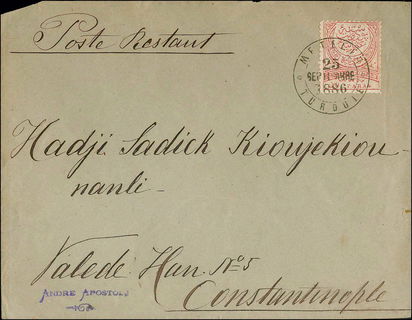 Poste Restant
25
SEPTEMBRE
1886
TURQUIE
Hadji Sadick Kioujekiou-
nanli-
Valede Han No 5
Constantinople
ANDRE APOSTOL